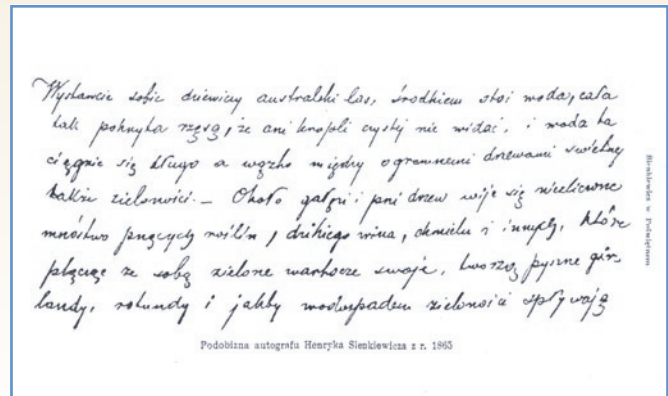 Wystawcie sobie dziewiczy australski las, środkiem stoi woda, cała
tak pokryta rzęsą, że ani kropli czystej nie widać, i woda ta
ciągnie się długo a wązko między ogromnemi drzewami świetnej
także zieloności. — Około gałęzi i pni drzew wije się niezliczone
mnóstwo pnących roślin, dzikiego wina, chmielu i innych, które
plącząc ze sobą zielone warkocze swoje, tworzą pyszne gir-
landy, rotundy i jakby wodospadem zieloności spływają
Podobizna autografu Henryka Sienkiewicza z r. 1865
Sienkiewicz w Poświętnem